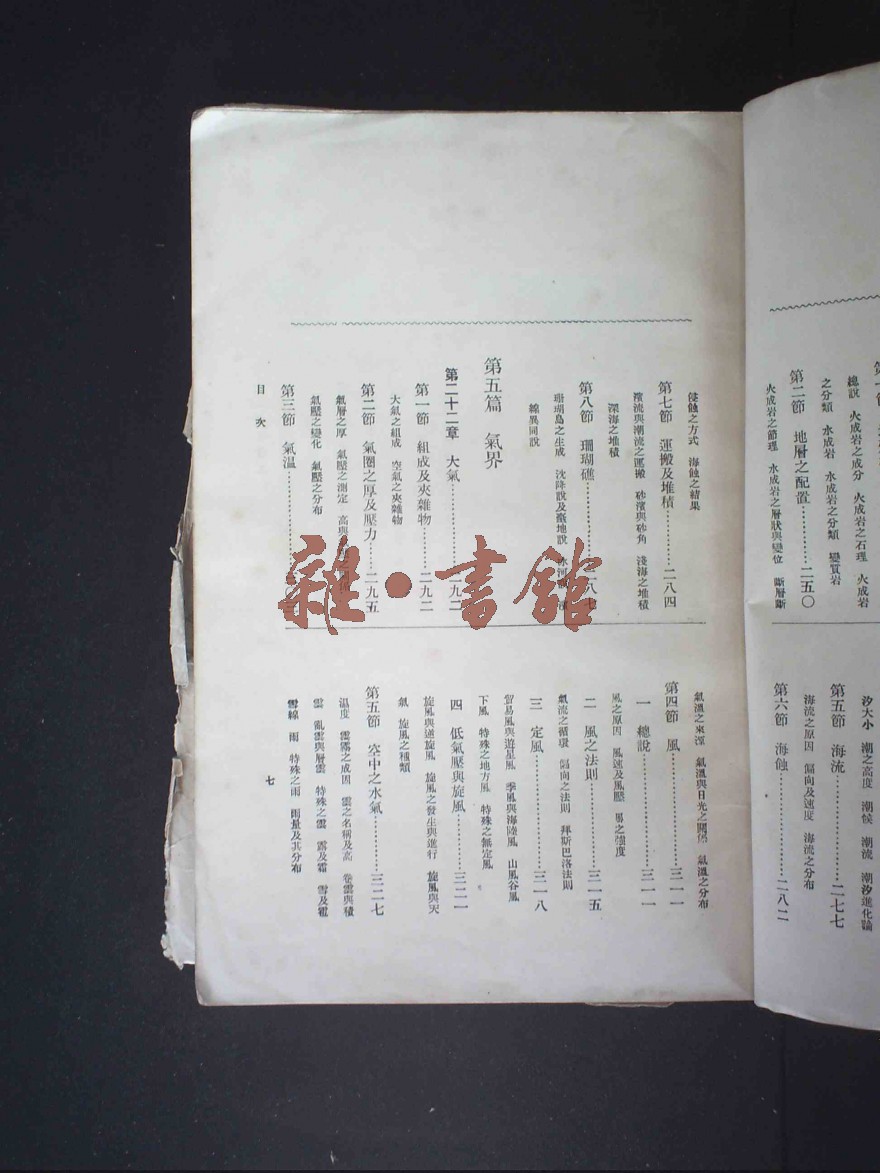 第二節　地層之配置………二五〇
火成岩之節理　水成岩之層狀與變位　斷層斷
總說　火成岩之成分　火成岩之石理　火成岩
之分類　水成岩　水成岩之分類　變質岩
汐大小　潮之高度　潮候　潮流　潮汐進化論
第五節　海流………二七七
海流之原因　偏向及速度　海流之分布
第六節　海蝕………二八二
侵蝕之方式　海蝕之結果
第七節　運搬及堆積………二八四
濱流與潮流之運搬　砂濱與砂角　淺海之堆積
深海之堆積
第八節　珊瑚礁………二八七
珊瑚島之生成　沈降說及臺地說　冰河
線異同說
第五篇　氣界
第二十二章　大氣………二九二
第一節　組成及夾雜物………二九二
大氣之組成　空氣之夾雜物
第二節　氣圈之厚及壓力………二九五
氣層之厚　氣壓之測定　高與
氣壓之變化　氣壓之分布
第三節　氣溫………
氣溫之來源　氣溫與日光之關係　氣溫之分布
第四節　風………三一一
一　總說………三一一
風之原因　風速及風壓　風之強度
二　風之法則………三一五
氣流之循環　偏向之法則　拜斯巴洛法則
三　定風………三一八
貿易風與遊星風　季風與海陸風　山風谷風
下風　特殊之地方風　特殊之無定風
四　低氣壓與旋風………三二一
旋風與逆旋風　旋風之發生與進行　旋風與天
氣　旋風之種類
第五節　空中之水氣………三二七
溫度　雲霧之成因　雲之名稱及高　卷雲與積
雲　亂雲與層雲　特殊之雲　露及霜　雪及雹
雪線　雨　特殊之雨　雨量及其分布
目次
七
雜·書館